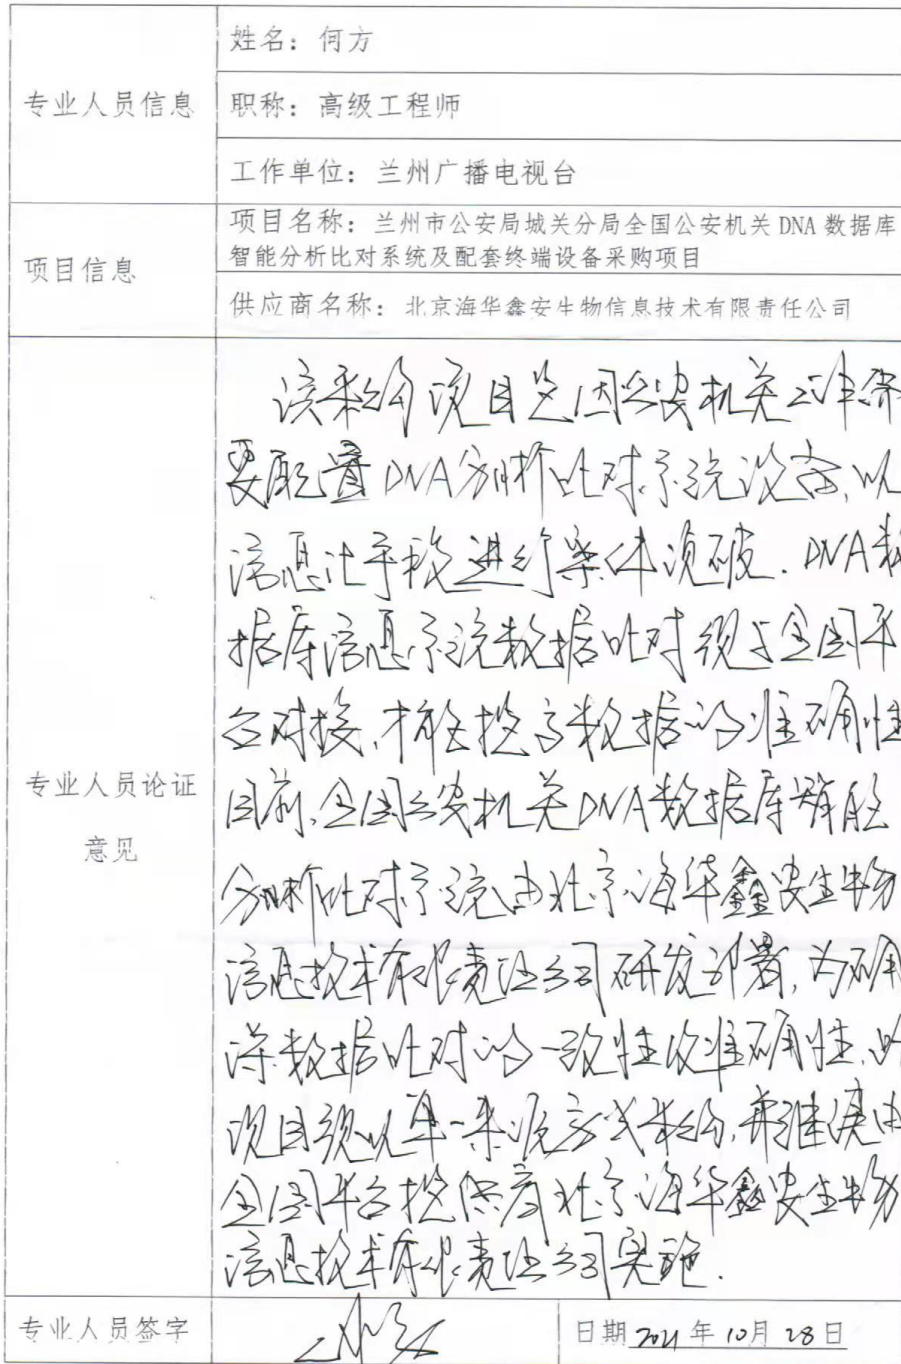 专业人员信息
姓名：何方
职称：高级工程师
工作单位：兰州广播电视台
项目信息
项目名称：兰州市公安局城关分局全国公安机关 DNA 数据库
智能分析比对系统及配套终端设备采购项目
供应商名称：北京海华鑫安生物信息技术有限责任公司
专业人员论证
意见
该采购项目是因公安机关工作需
要配置DNA分析比对系统设备,以
信息化手段进行案件侦破.DNA数
据库信息系统数据比对须与全国平
台对接,才能提高数据的准确性
目前,全国公安机关DNA数据库智能
分析比对系统由北京海华鑫安生物
信息技术有限责任公司研发部署,为确
保数据比对的一致性及准确性,此
项目须以单一来源方式采购,并继续由
全国平台提供商北京海华鑫安生物
信息技术有限责任公司实施.
专业人员签字
日期 2021 年 10月 28日